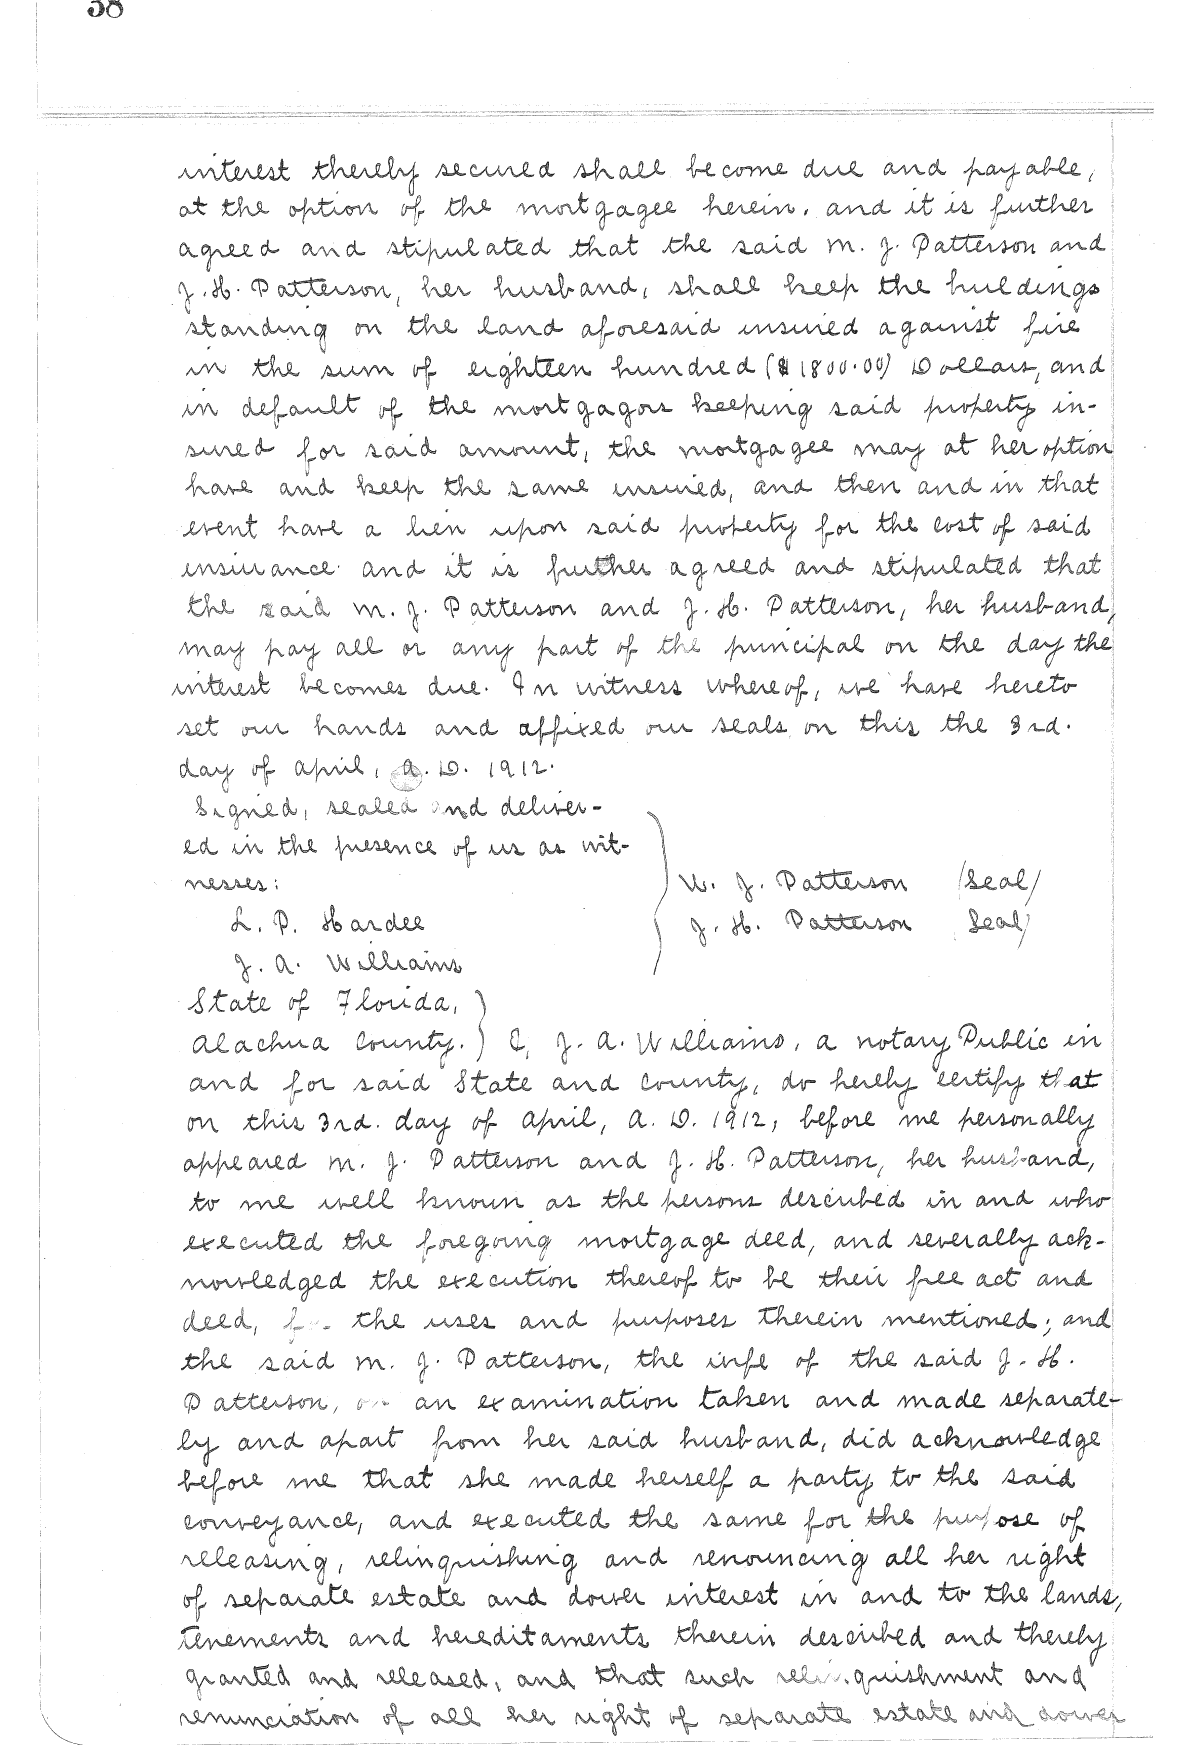 58
interest thereby secured shall become due and payable,
at the option of the mortgagee herein. and it is further
agreed and stipulated that the said M. J. Patterson and
J. H. Patterson, her husband, shall keep the buildings
standing on the land aforesaid insured against fire
in the sum of eighteen hundred ($1800.00) Dollars, and
in default of the mortgagors keeping said property in-
sured for said amount, the mortgagee may at her option
have and keep the same insured, and then and in that
event have a lien upon said property for the cost of said
insurance. and it is further agreed and stipulated that
the said M. J. Patterson and J. H. Patterson, her husband,
may pay all or any part of the principal on the day the
interest becomes due. In witness whereof, we have hereto
set our hands and affixed our seals on this the 3rd.
day of April, A. D. 1912.
Signed, sealed and deliver-
ed in the presence of us as wit-
nesses:
W. J. Patterson (Seal)
L. P. Hardee
J. H. Patterson (Seal)
J. A. Williams
State of Florida,
Alachua County. } I, J. A. Williams, a notary Public in
and for said State and County, do hereby certify that
on this 3rd. day of April, A. D. 1912, before me personally
appeared M. J. Patterson and J. H. Patterson, her husband,
to me well known as the persons described in and who
executed the foregoing mortgage deed, and severally ack-
nowledged the execution thereof to be their free act and
deed, for the uses and purposes therein mentioned; and
the said M. J. Patterson, the wife of the said J. H.
Patterson, on an examination taken and made separate-
ly and apart from her said husband, did acknowledge
before me that she made herself a party to the said
conveyance, and executed the same for the purpose of
releasing, relinquishing and renouncing all her right
of separate estate and dower interest in and to the lands,
tenements and hereditaments therein described and thereby
granted and released, and that such relinquishment and
renunciation of all her right of separate estate and dower